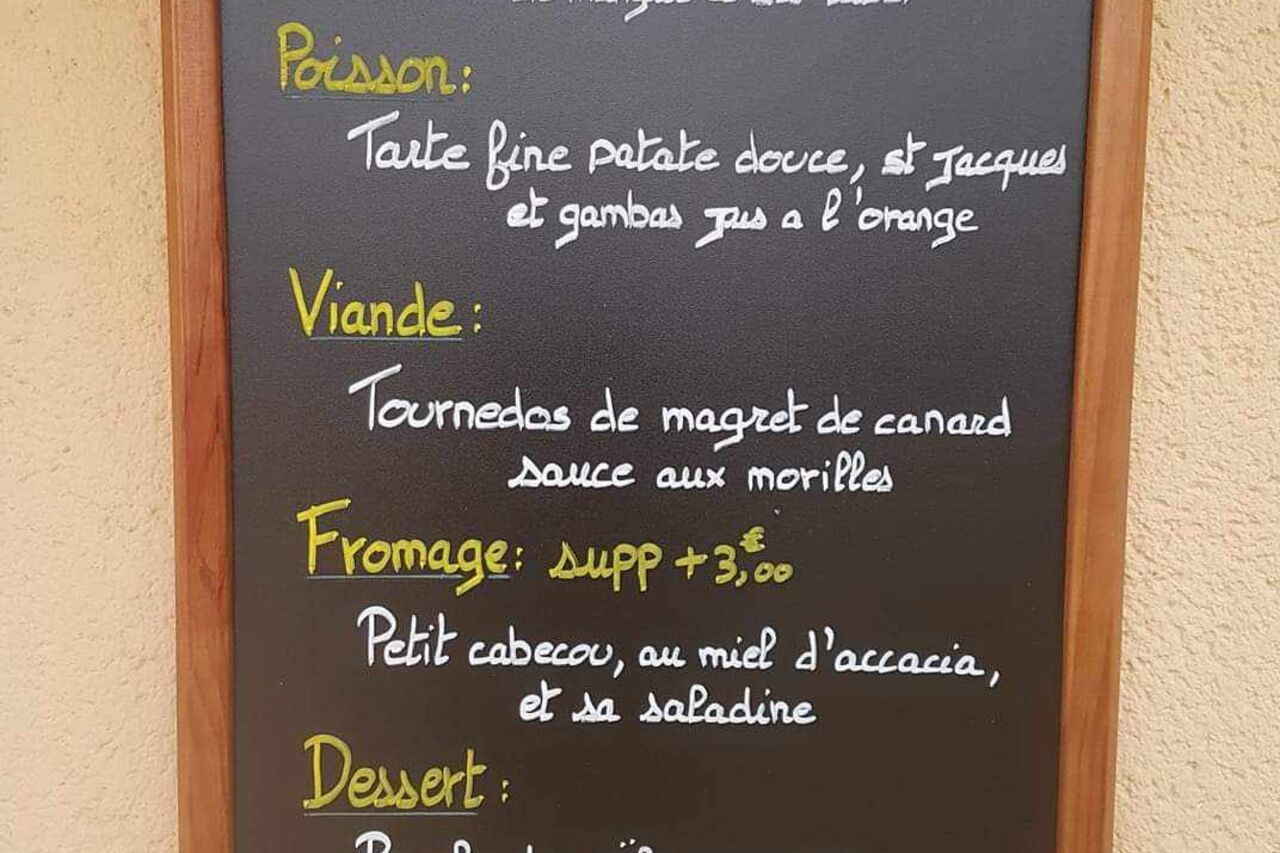 Poisson:
Tarte fine patate douce, st Jacques
et gambas jus a l'orange
Viande:
Tournedos de magret de canard
sauce aux morilles
Fromage: supp +3,00€
Petit cabecou, au miel d'accacia,
et sa saladine
Dessert: